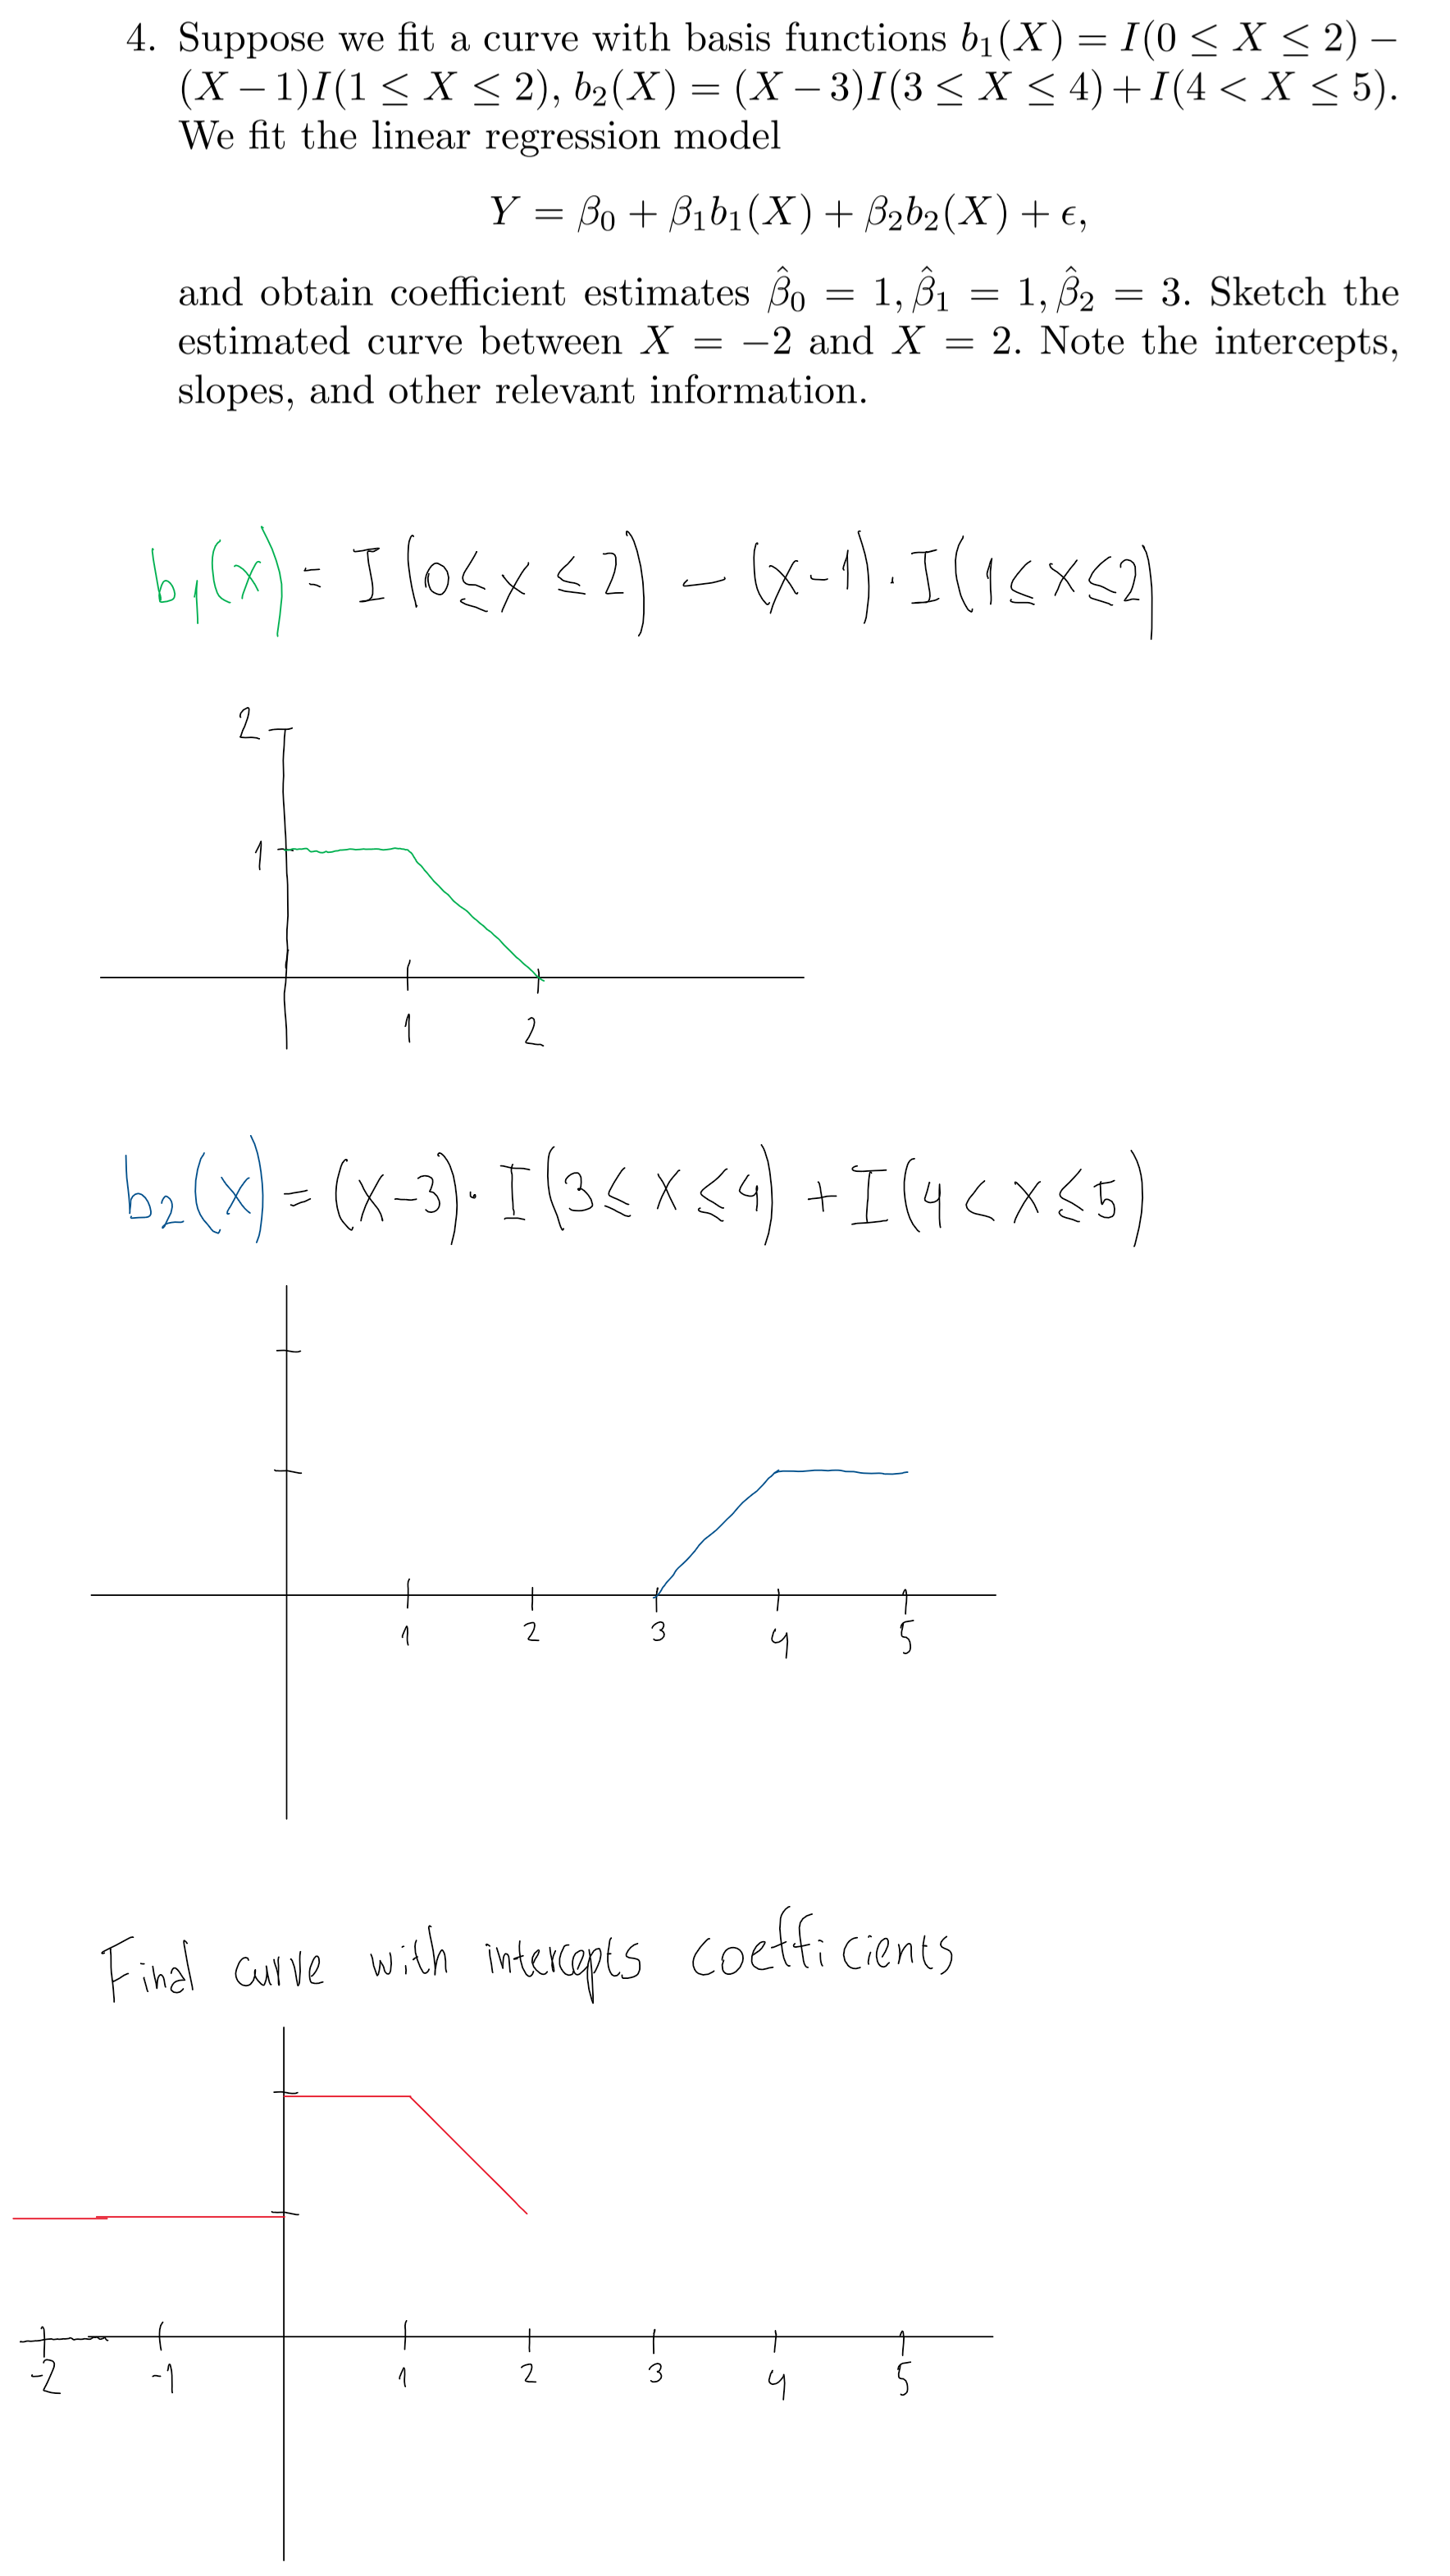 4. Suppose we fit a curve with basis functions b₁(X) = I(0 ≤ X ≤ 2) −
(X − 1)I(1 ≤ X ≤ 2), b₂(X) = (X − 3)I(3 ≤ X ≤ 4) + I(4 < X ≤ 5).
We fit the linear regression model
Y = β₀ + β₁b₁(X) + β₂b₂(X) + ϵ,
and obtain coefficient estimates β̂₀ = 1, β̂₁ = 1, β̂₂ = 3. Sketch the
estimated curve between X = −2 and X = 2. Note the intercepts,
slopes, and other relevant information.
b₁(x) = I(0 ≤ x ≤ 2) − (x-1) · I(1 ≤ x ≤ 2)
2
1
1 2
b₂(x) = (x-3) · I(3 ≤ x ≤ 4) + I(4 < x ≤ 5)
1 2 3 4 5
Final curve with intercepts coefficients
-2 -1 1 2 3 4 5